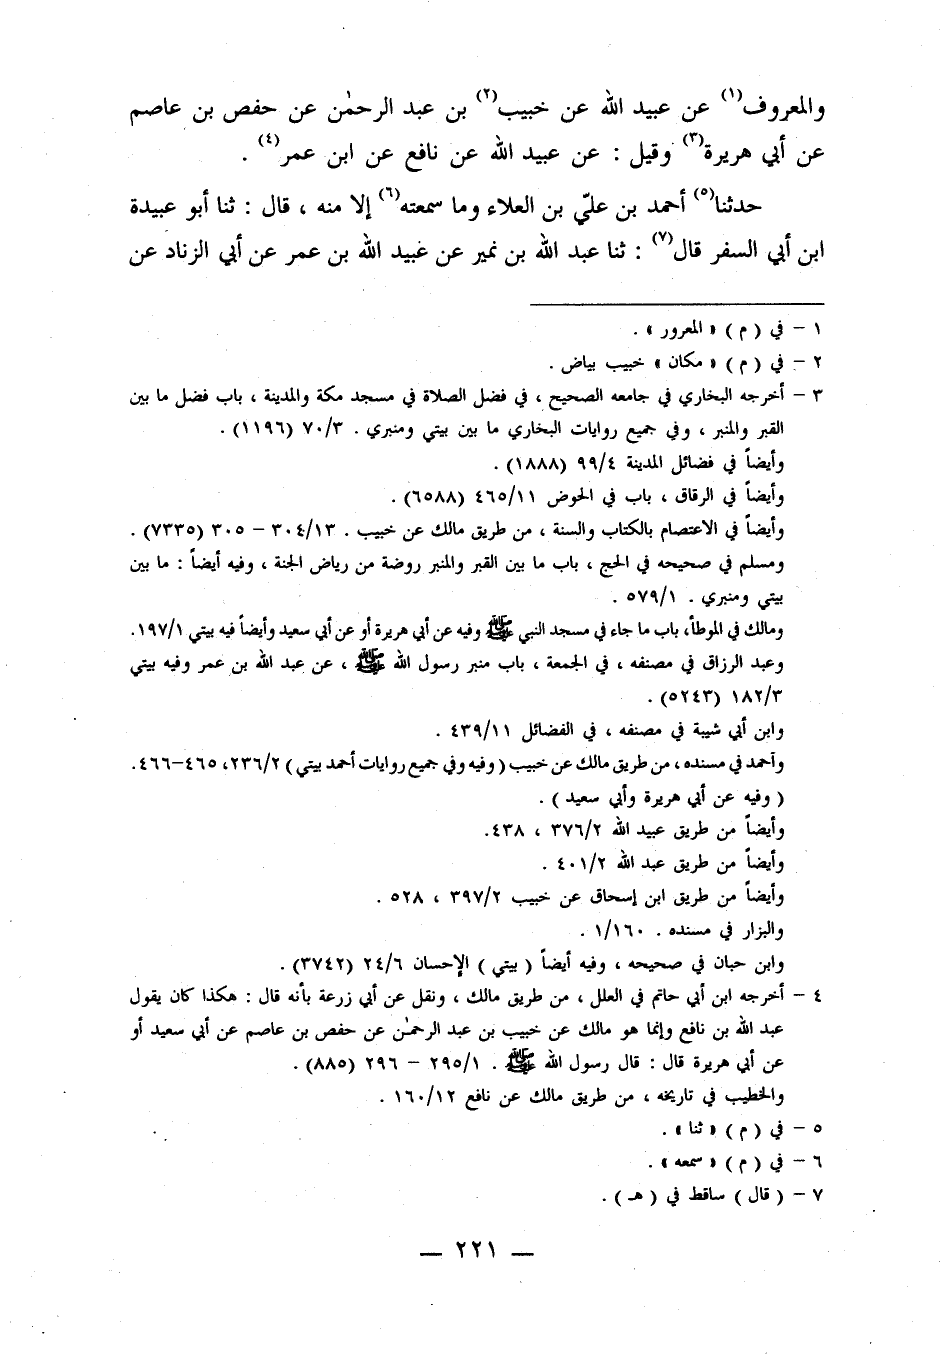 والمعروف(١) عن عبيد الله عن خبيب(٢) بن عبد الرحمٰن عن حفص بن عاصم
عن أبي هريرة(٣) وقيل : عن عبيد الله عن نافع عن ابن عمر(٤) .
حدثنا(٥) أحمد بن عليّ بن العلاء وما سمعته(٦) إلا منه ، قال : ثنا أبو عبيدة
ابن أبي السفر قال(٧) : ثنا عبد الله بن نمير عن عبيد الله بن عمر عن أبي الزناد عن
١ – في ( م ) « المعرور » .
٢ – في ( م ) « مكان » خبيب بياض .
٣ – أخرجه البخاري في جامعه الصحيح ، في فضل الصلاة في مسجد مكة والمدينة ، باب فضل ما بين
القبر والمنبر ، وفي جميع روايات البخاري ما بين بيتي ومنبري . ٧٠/٣ (١١٩٦) .
وأيضاً في فضائل المدينة ٩٩/٤ (١٨٨٨) .
وأيضاً في الرقاق ، باب في الحوض ٤٦٥/١١ (٦٥٨٨) .
وأيضاً في الاعتصام بالكتاب والسنة ، من طريق مالك عن خبيب . ٣٠٤/١٣ – ٣٠٥ (٧٣٣٥) .
ومسلم في صحيحه في الحج ، باب ما بين القبر والمنبر روضة من رياض الجنة ، وفيه أيضاً : ما بين
بيتي ومنبري . ٥٧٩/١ .
ومالك في الموطأ، باب ما جاء في مسجد النبي ﷺ وفيه عن أبي هريرة أو عن أبي سعيد وأيضاً فيه بيتي ١٩٧/١.
وعبد الرزاق في مصنفه ، في الجمعة ، باب منبر رسول الله ﷺ ، عن عبد الله بن عمر وفيه بيتي
١٨٢/٣ (٥٢٤٣) .
وابن أبي شيبة في مصنفه ، في الفضائل ٤٣٩/١١ .
وأحمد في مسنده ، من طريق مالك عن خبيب ( وفيه وفي جميع روايات أحمد بيتي ) ٢٣٦/٢، ٤٦٥–٤٦٦.
( وفيه عن أبي هريرة وأبي سعيد ) .
وأيضاً من طريق عبيد الله ٣٧٦/٢ ، ٤٣٨.
وأيضاً من طريق عبد الله ٤٠١/٢ .
وأيضاً من طريق ابن إسحاق عن خبيب ٣٩٧/٢ ، ٥٢٨ .
والبزار في مسنده . ١/١٦٠ .
وابن حبان في صحيحه ، وفيه أيضاً ( بيتي ) الإحسان ٢٤/٦ (٣٧٤٢) .
٤ – أخرجه ابن أبي حاتم في العلل ، من طريق مالك ، ونقل عن أبي زرعة بأنه قال : هكذا كان يقول
عبد الله بن نافع وإنما هو مالك عن خبيب بن عبد الرحمٰن عن حفص بن عاصم عن أبي سعيد أو
عن أبي هريرة قال : قال رسول الله ﷺ . ٢٩٥/١ – ٢٩٦ (٨٨٥) .
والخطيب في تاريخه ، من طريق مالك عن نافع ١٦٠/١٢ .
٥ – في ( م ) « ثنا » .
٦ – في ( م ) « سمعه » .
٧ – ( قال ) ساقط في ( هـ ) .
— ٢٢١ —